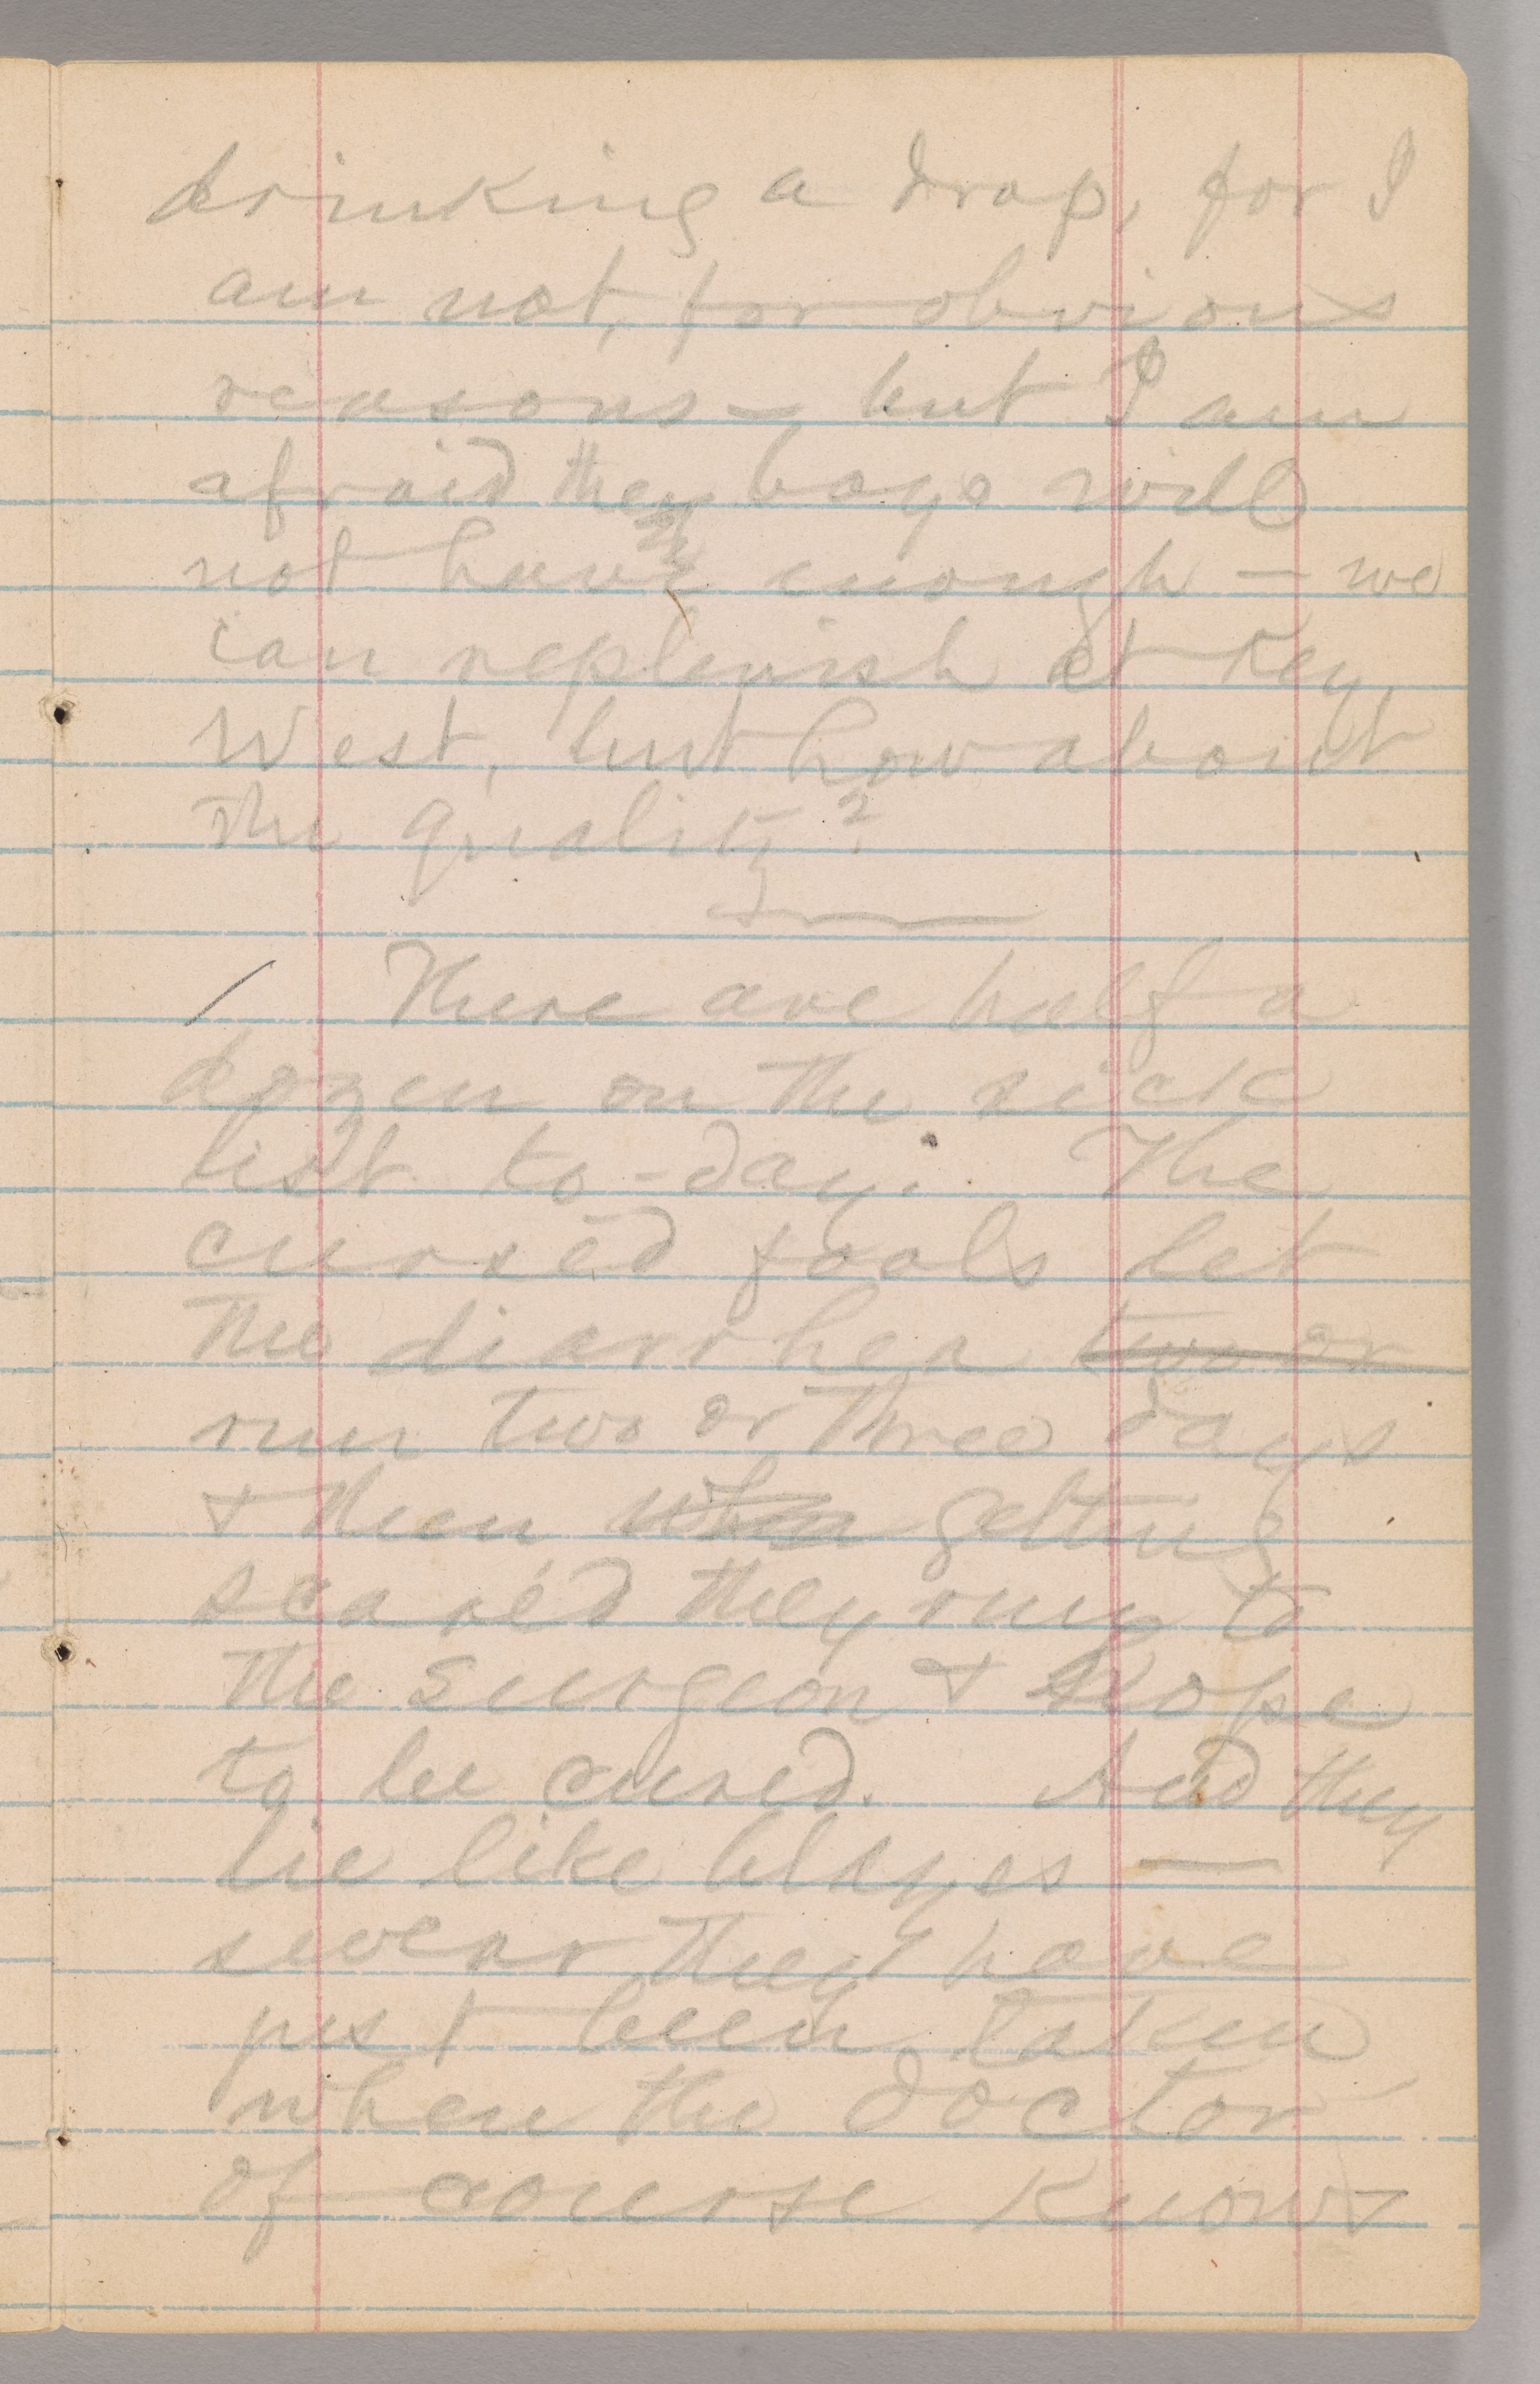 drinking a drop, for I
am not, for obvious
reasons - but I am
afraid the boys will
not have enough - we
can replenish at Key
West, but how about
the quality?
There are half a
dozen on the sick
list to-day. The
cursed fools let
the diarrhea two or
run two or three days
& then when getting
scared they run to
the surgeon & hope
to be cured. And they
lie like blazes -
swear they have
just been taken
when the doctor
of course knows